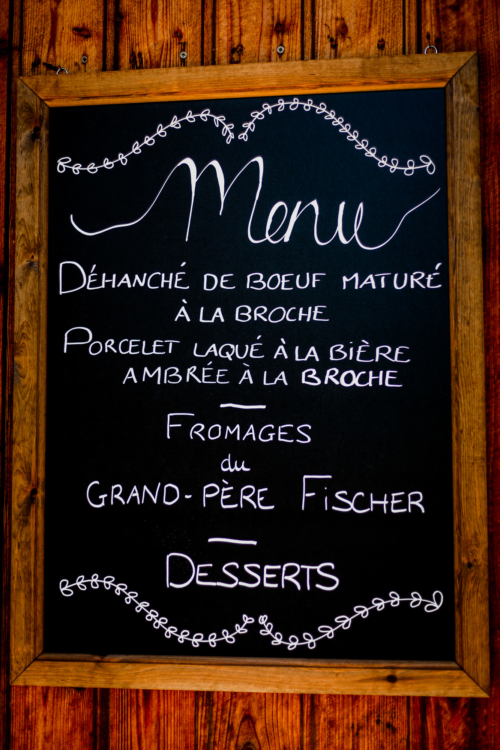 Menu
DÉHANCHÉ DE BOEUF MATURÉ
À LA BROCHE
PORCELET LAQUÉ À LA BIÈRE
AMBRÉE À LA BROCHE
FROMAGES
du
GRAND-PÈRE FISCHER
DESSERTS